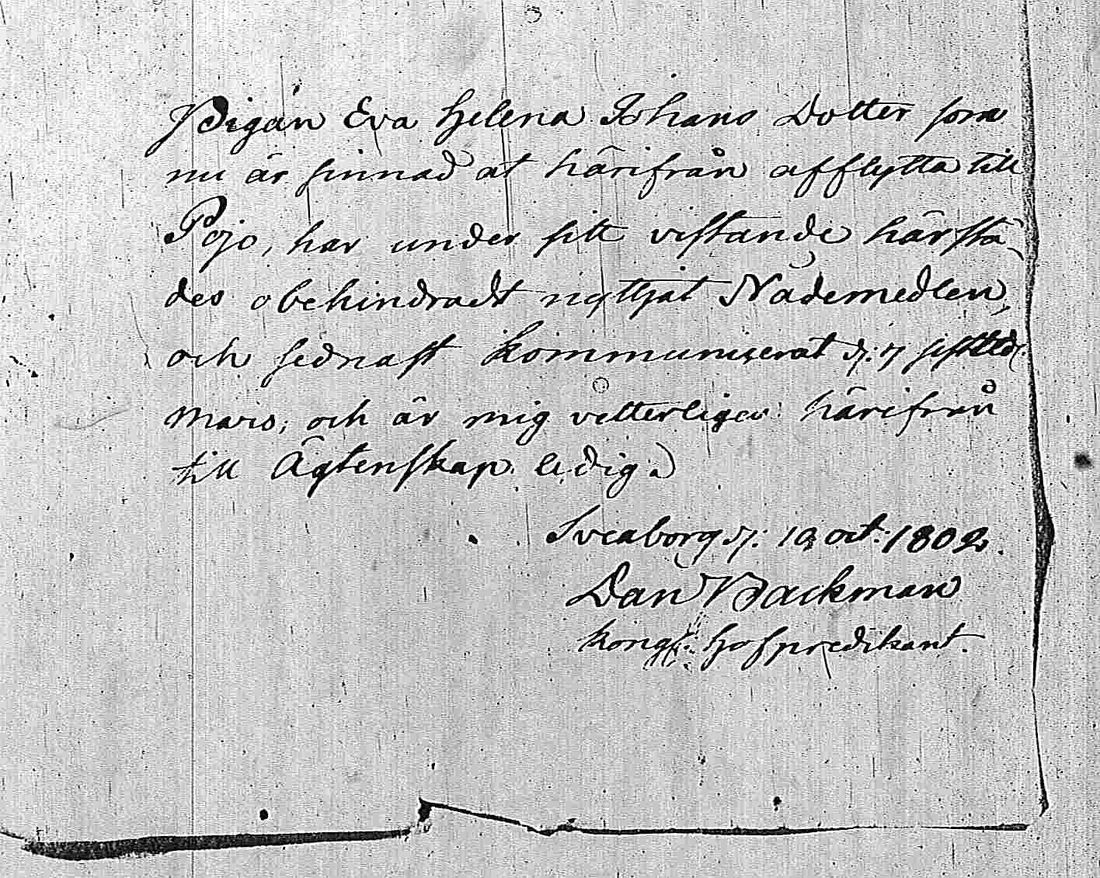 Pigan Eva Helena Johans Dotter som
nu är sinnad at härifrån afflytta till
Pojo, har under sitt vistande härstä-
des obehindradt nyttjat Nådemedlen,
och sednast kommunicerat d: 7 sistl:
Mars, och är mig vetterligen härifrån
till Ägtenskap ledig.
Sveaborg d: 19 oct: 1802.
Dan Backman
Kongl: Hofpredikant.